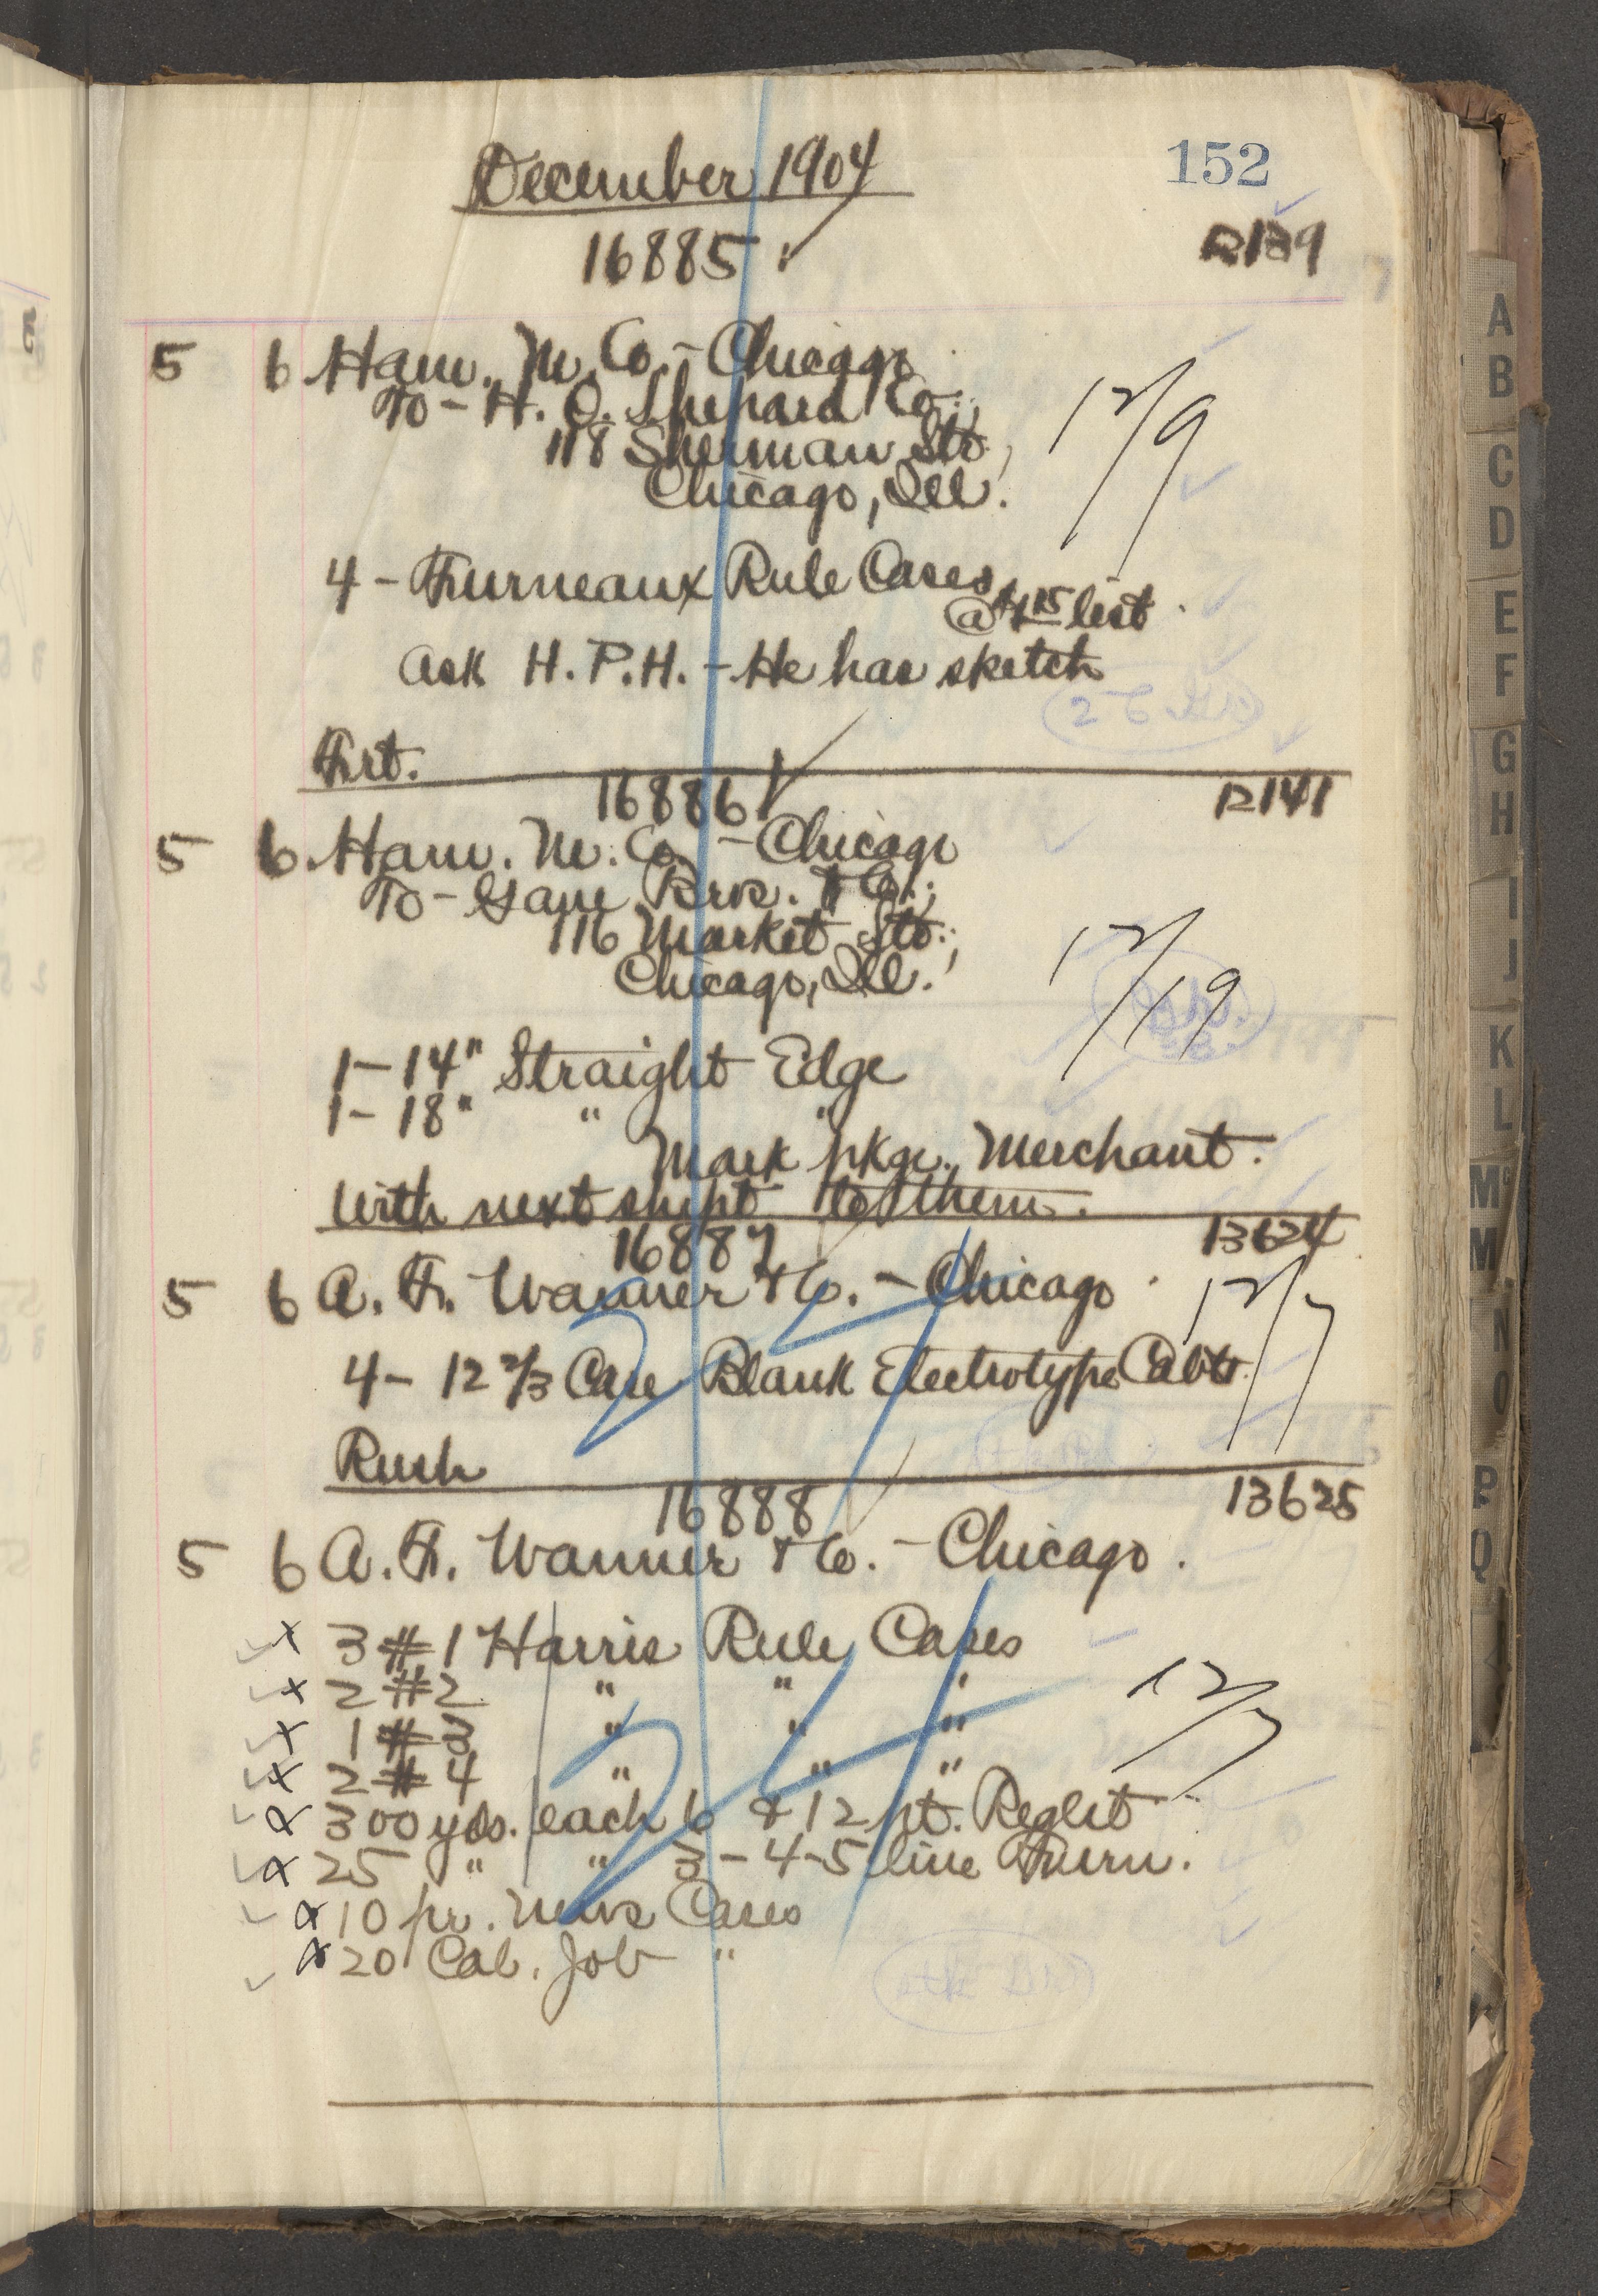 152
December 1904
16885 R139
5 6 Ham. M. Co. - Chicago
To - H. O. Shepard Co.,
118 Sherman St.,
Chicago, Ill.
12/9
4 - Furneaux Rule Cases
list
Ask H. P. H. - He has sketch
Frt.
16886 R141
5 6 Ham. M. Co. - Chicago
To - Gane Bros. & Co.,
116 Market St.,
Chicago, Ill.
12/19
1 - 14" Straight Edge
1 - 18" " "
Mark pkge. Merchant.
With next shipt to them.
16887 13624
5 6 A. F. Wanner & Co. - Chicago
12/7
4 - 12 2/3 Case Blank Electrotype Cabts.
Rush
16888 13625
5 6 A. F. Wanner & Co. - Chicago.
x 3 #1 Harris Rule Cases
x 2 #2 " " "
x 1 #3 " " "
12/7
x 2 #4 " " "
x 300 yds. each 6 & 12 pt. Reglet
x 25 " " 3-4-5 line Furn.
x 10 pr. News Cases
x 20 Cab. Job "
A
B
C
D
E
F
G
H
I
J
K
L
Mc
M
N
O
P
Q